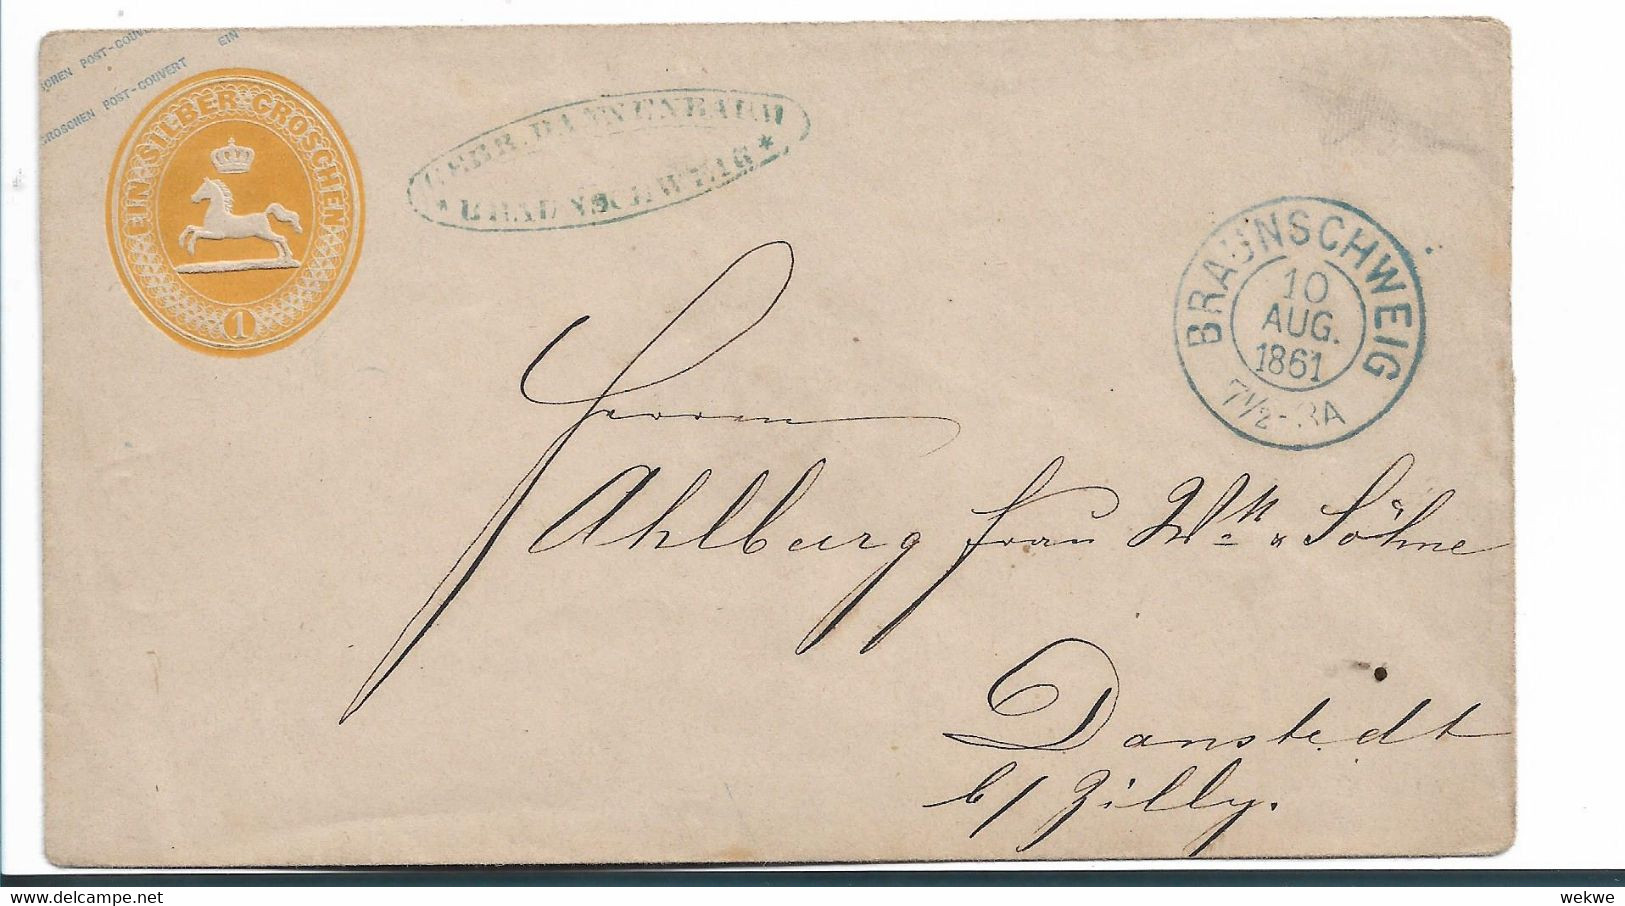 POST-COUVERT EIN
GROSCHEN POST-COUVERT
EIN SILBER-GROSCHEN
1
GEBR. DANNENBAUM
* BRAUNSCHWEIG *
BRAUNSCHWEIG
10
AUG.
1861
7½-8A
Herren
Ahlburg frau &
Söhne
Danstedt
b/ Zilly.
wekwe